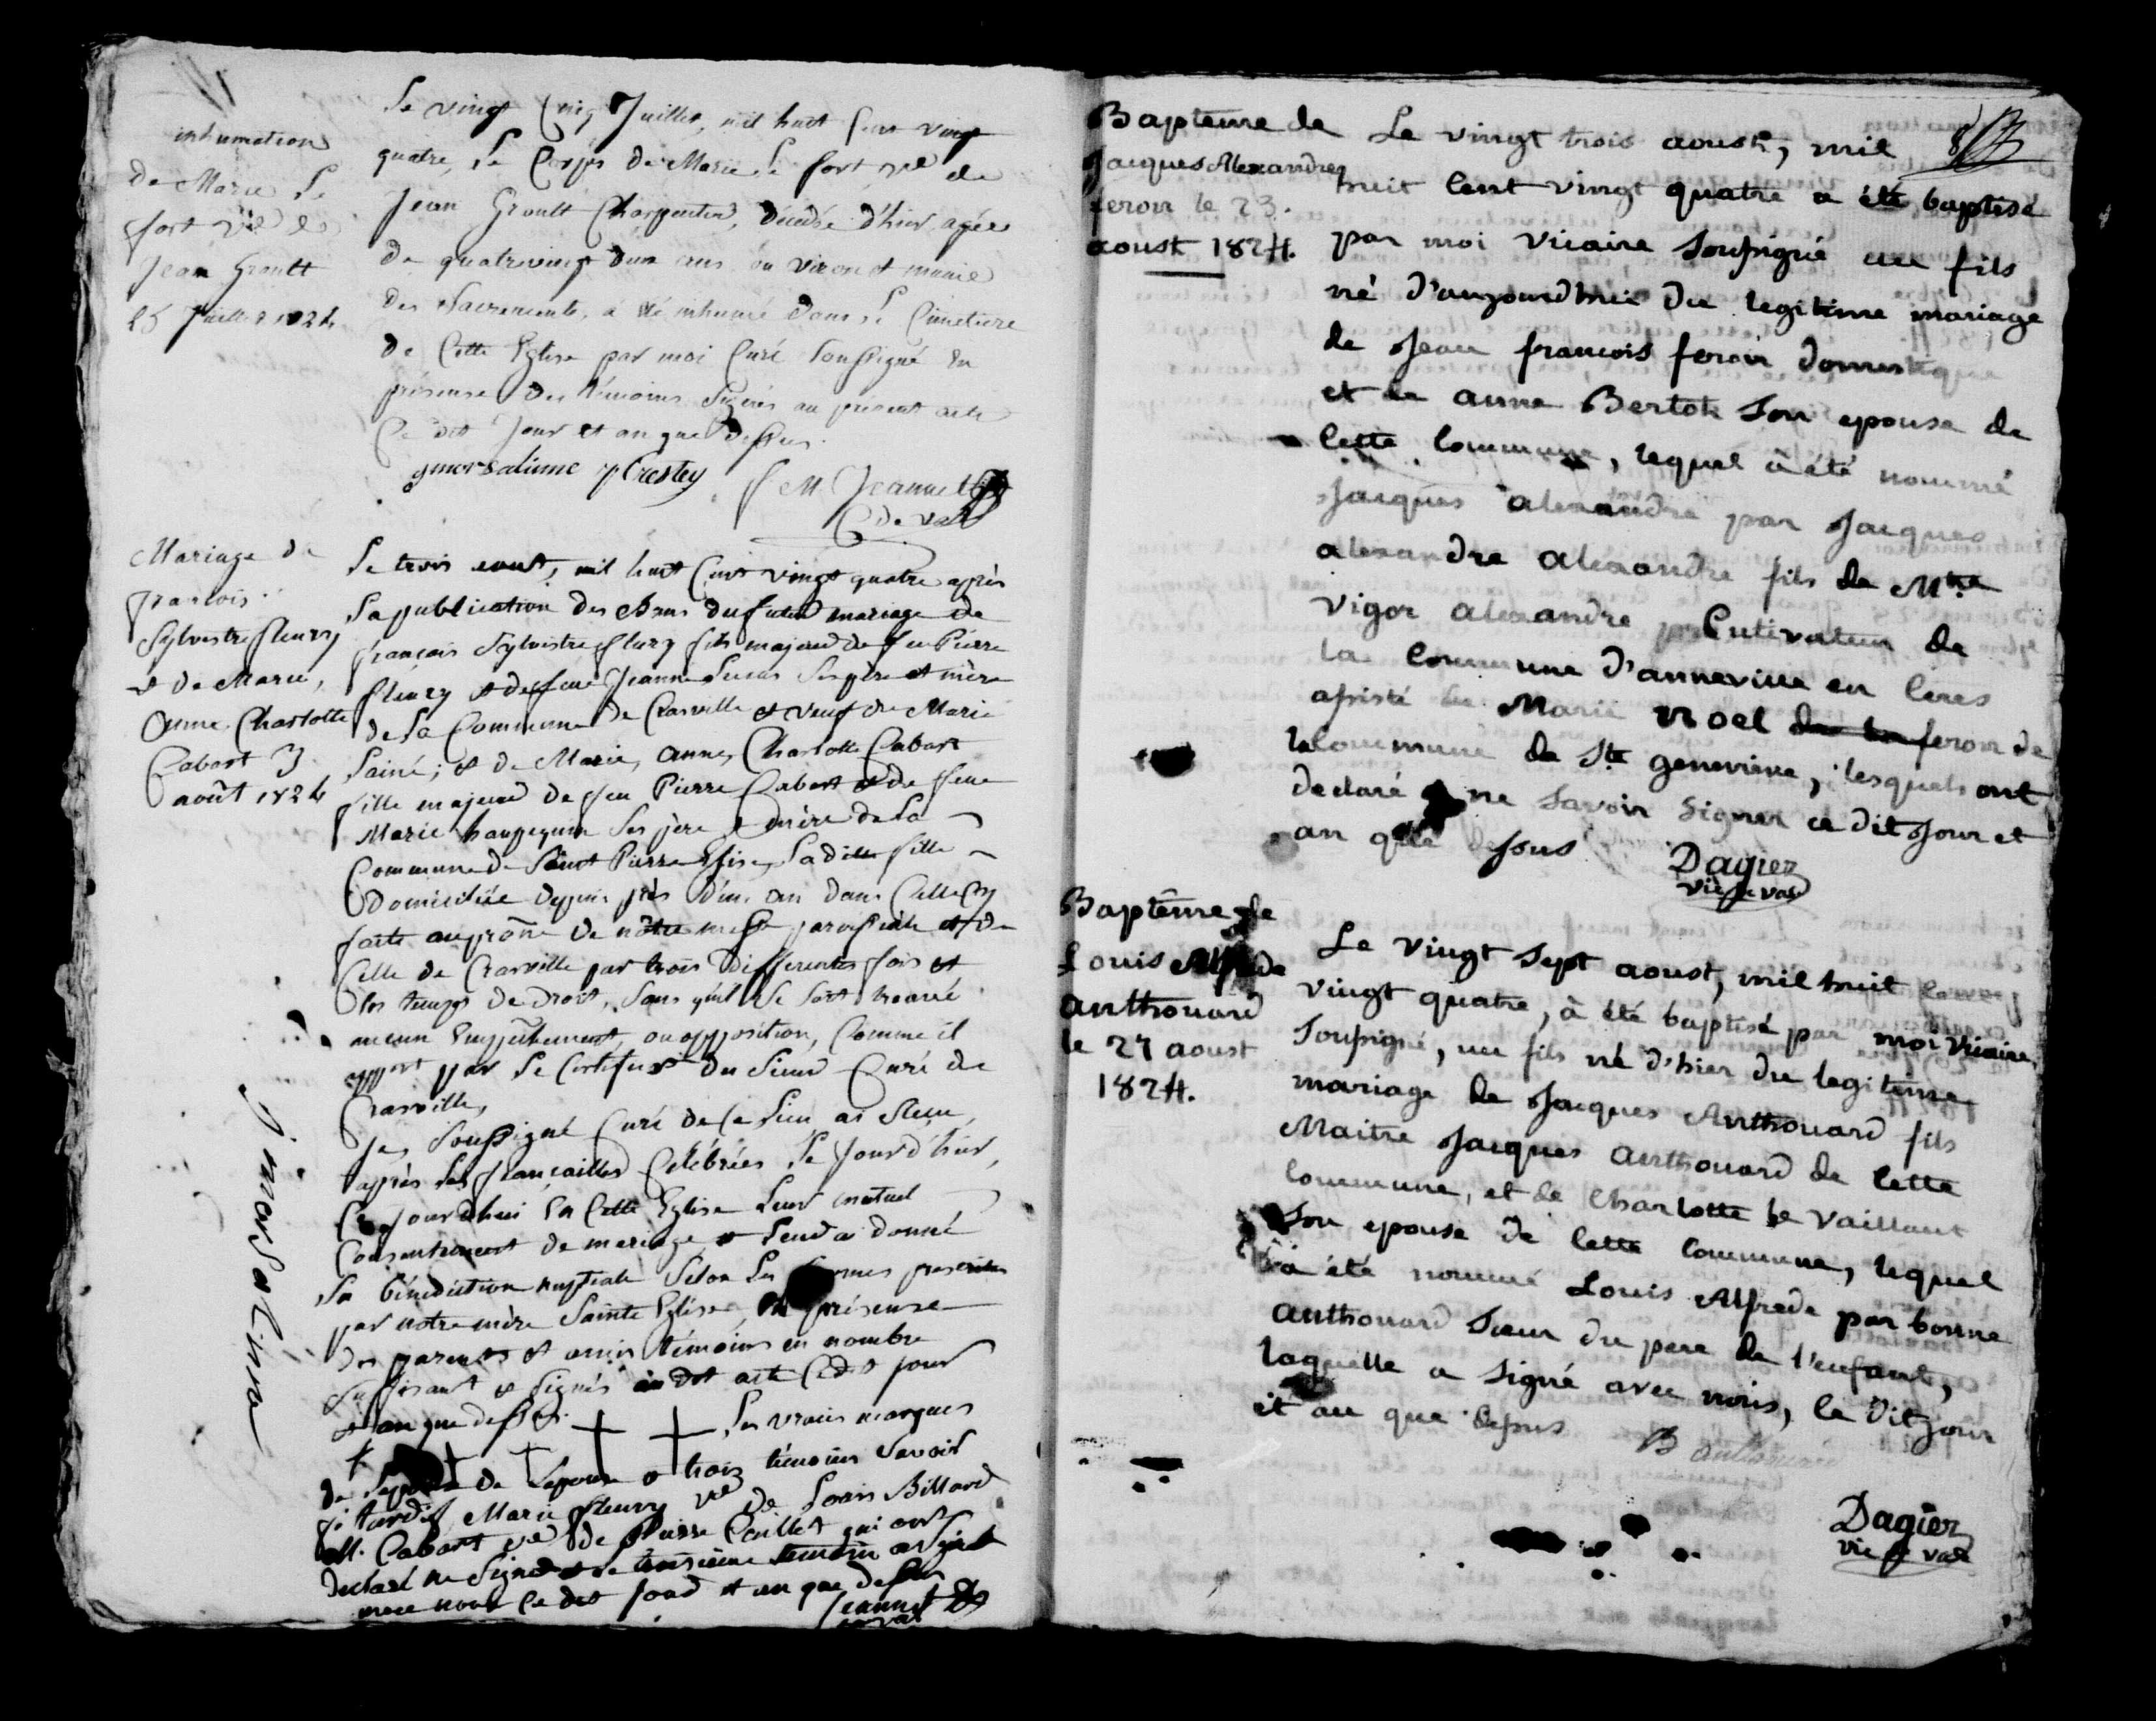 inhumation
de Marie Le
fort vve de
Jean Groult
25 Juillet 1824
Le vingt Cinq Juillet, mil huit Cent vingt
quatre, Le Corps de Marie Le fort, vve de
Jean Groult Charpentier, décédée d'hier, agée
de quatrevingt deux ans ou viron et munie
des Sacrements, a été inhumé dans Le Cimetiere
de Cette Eglise par moi Curé Soussigné En
présense des témoins Signés au présent acte
Ce dit Jour et an que dessus.
gmorsalinne pCrestey
f M Jeannet
C de vast
Mariage de
francois
Sylvestre fleury
et de Marie,
Anne, Charlotte
Cabart 3
août 1824
Le trois aout, mil huit Cent vingt quatre après
La publication des Bans du futur mariage de
françois Sylvestre fleury fils majeur de feu Pierre
fleury et de feue Jeanne Lucas Ses père et mère
de La Commune de Crasville et veuf de Marie
Lainé; et de Marie, Anne, Charlotte Cabart
fille majeure de feu Pierre Cabart et de feue
Marie Ses père et mère de La
Commune de Saint Pierre Eglise, La dite fille
Domiciliée depuis près d'un an dans Celle Cy
faite au prône de nôtre messe paroissiale et de
Celle de Crasville par trois differentes fois et
les temps de droit, Sans qu'il Se Soit trouvé
aucun Empêchement, ou opposition, Comme il
appert par Le Certificat du Sieur Curé de
Crasville,
Je Soussigné Curé de Ce Lieu ai Reçu,
après Les fiançailles Célébrées Le Jour d'hier,
Ce jourdhui En Cette Eglise Leur mutuel
Consentement de mariage et Leur ai donné
La bénédiction nuptiale Selon Les formes prescrites
par notre mère Sainte Eglise, En présense
des parents et amis témoins en nombre
Suffisant et Signés au dit acte Ce dit jour
et an que dessus. Les vraies marques
de L'epoux de L'epouse et trois témoins Savoir
tardif, Marie fleury vve de Louis Billard
M. Cabart vve de Pierre Caillet qui ont
Declaré ne Signer et Le troisième témoin a Signé
avec nous Ce dit Jour et an que dessus
Jeannet
j morsalinne
Bapteme de
Jacques Alexandre
feron le 23.
aoust 1824.
Le vingt trois aoust, mil
huit Cent vingt quatre a été baptisé
par moi vicaire Soussigné un fils
né d'aujourdhui du legitime mariage
de Jean francois feron domestique
et de anne Bertot Son epouse de
Cette Commune, lequel à été nommé
Jacques alexandre par Jacques
alexandre alexandre fils de Mtre
vigor alexandre Cultivateur de
la Commune d'anneville en Ceres
assisté de Marie Noel feron de
la Commune de Ste geneviève, lesquels ont
declaré ne savoir signer ce dit Jour et
an que dessus
Dagier
vic de vast
Baptême de
Louis Alfrede
anthouard
le 27 aoust
1824.
Le vingt Sept aoust, mil huit Cent
vingt quatre, à été baptisé par moi vicaire
Soussigné, un fils né d'hier du legitime
mariage de Jacques Anthouard fils
Maitre Jacques anthouard de Cette
Commune, et de Charlotte le Vaillant
Son epouse de Cette Commune, lequel
à été nommé Louis Alfrede par bonne
anthouard Sœur du pere de l'enfant,
laquelle a signé avec nous, le dit Jour
et an que dessus
B anthouard
Dagier
vic de vast